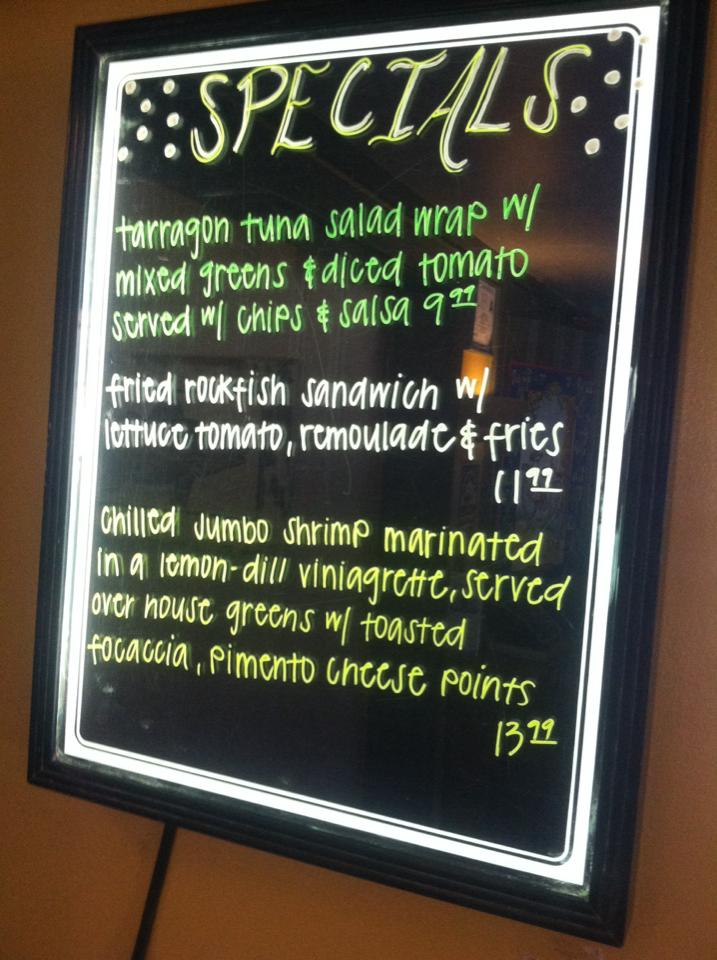 SPECIALS
tarragon tuna salad wrap w/
mixed greens & diced tomato
served w/ chips & salsa 9.99
fried rockfish sandwich w/
lettuce tomato, remoulade & fries
11.99
chilled Jumbo shrimp marinated
in a lemon-dill viniagrette, served
over house greens w/ toasted
focaccia, pimento cheese points
13.99